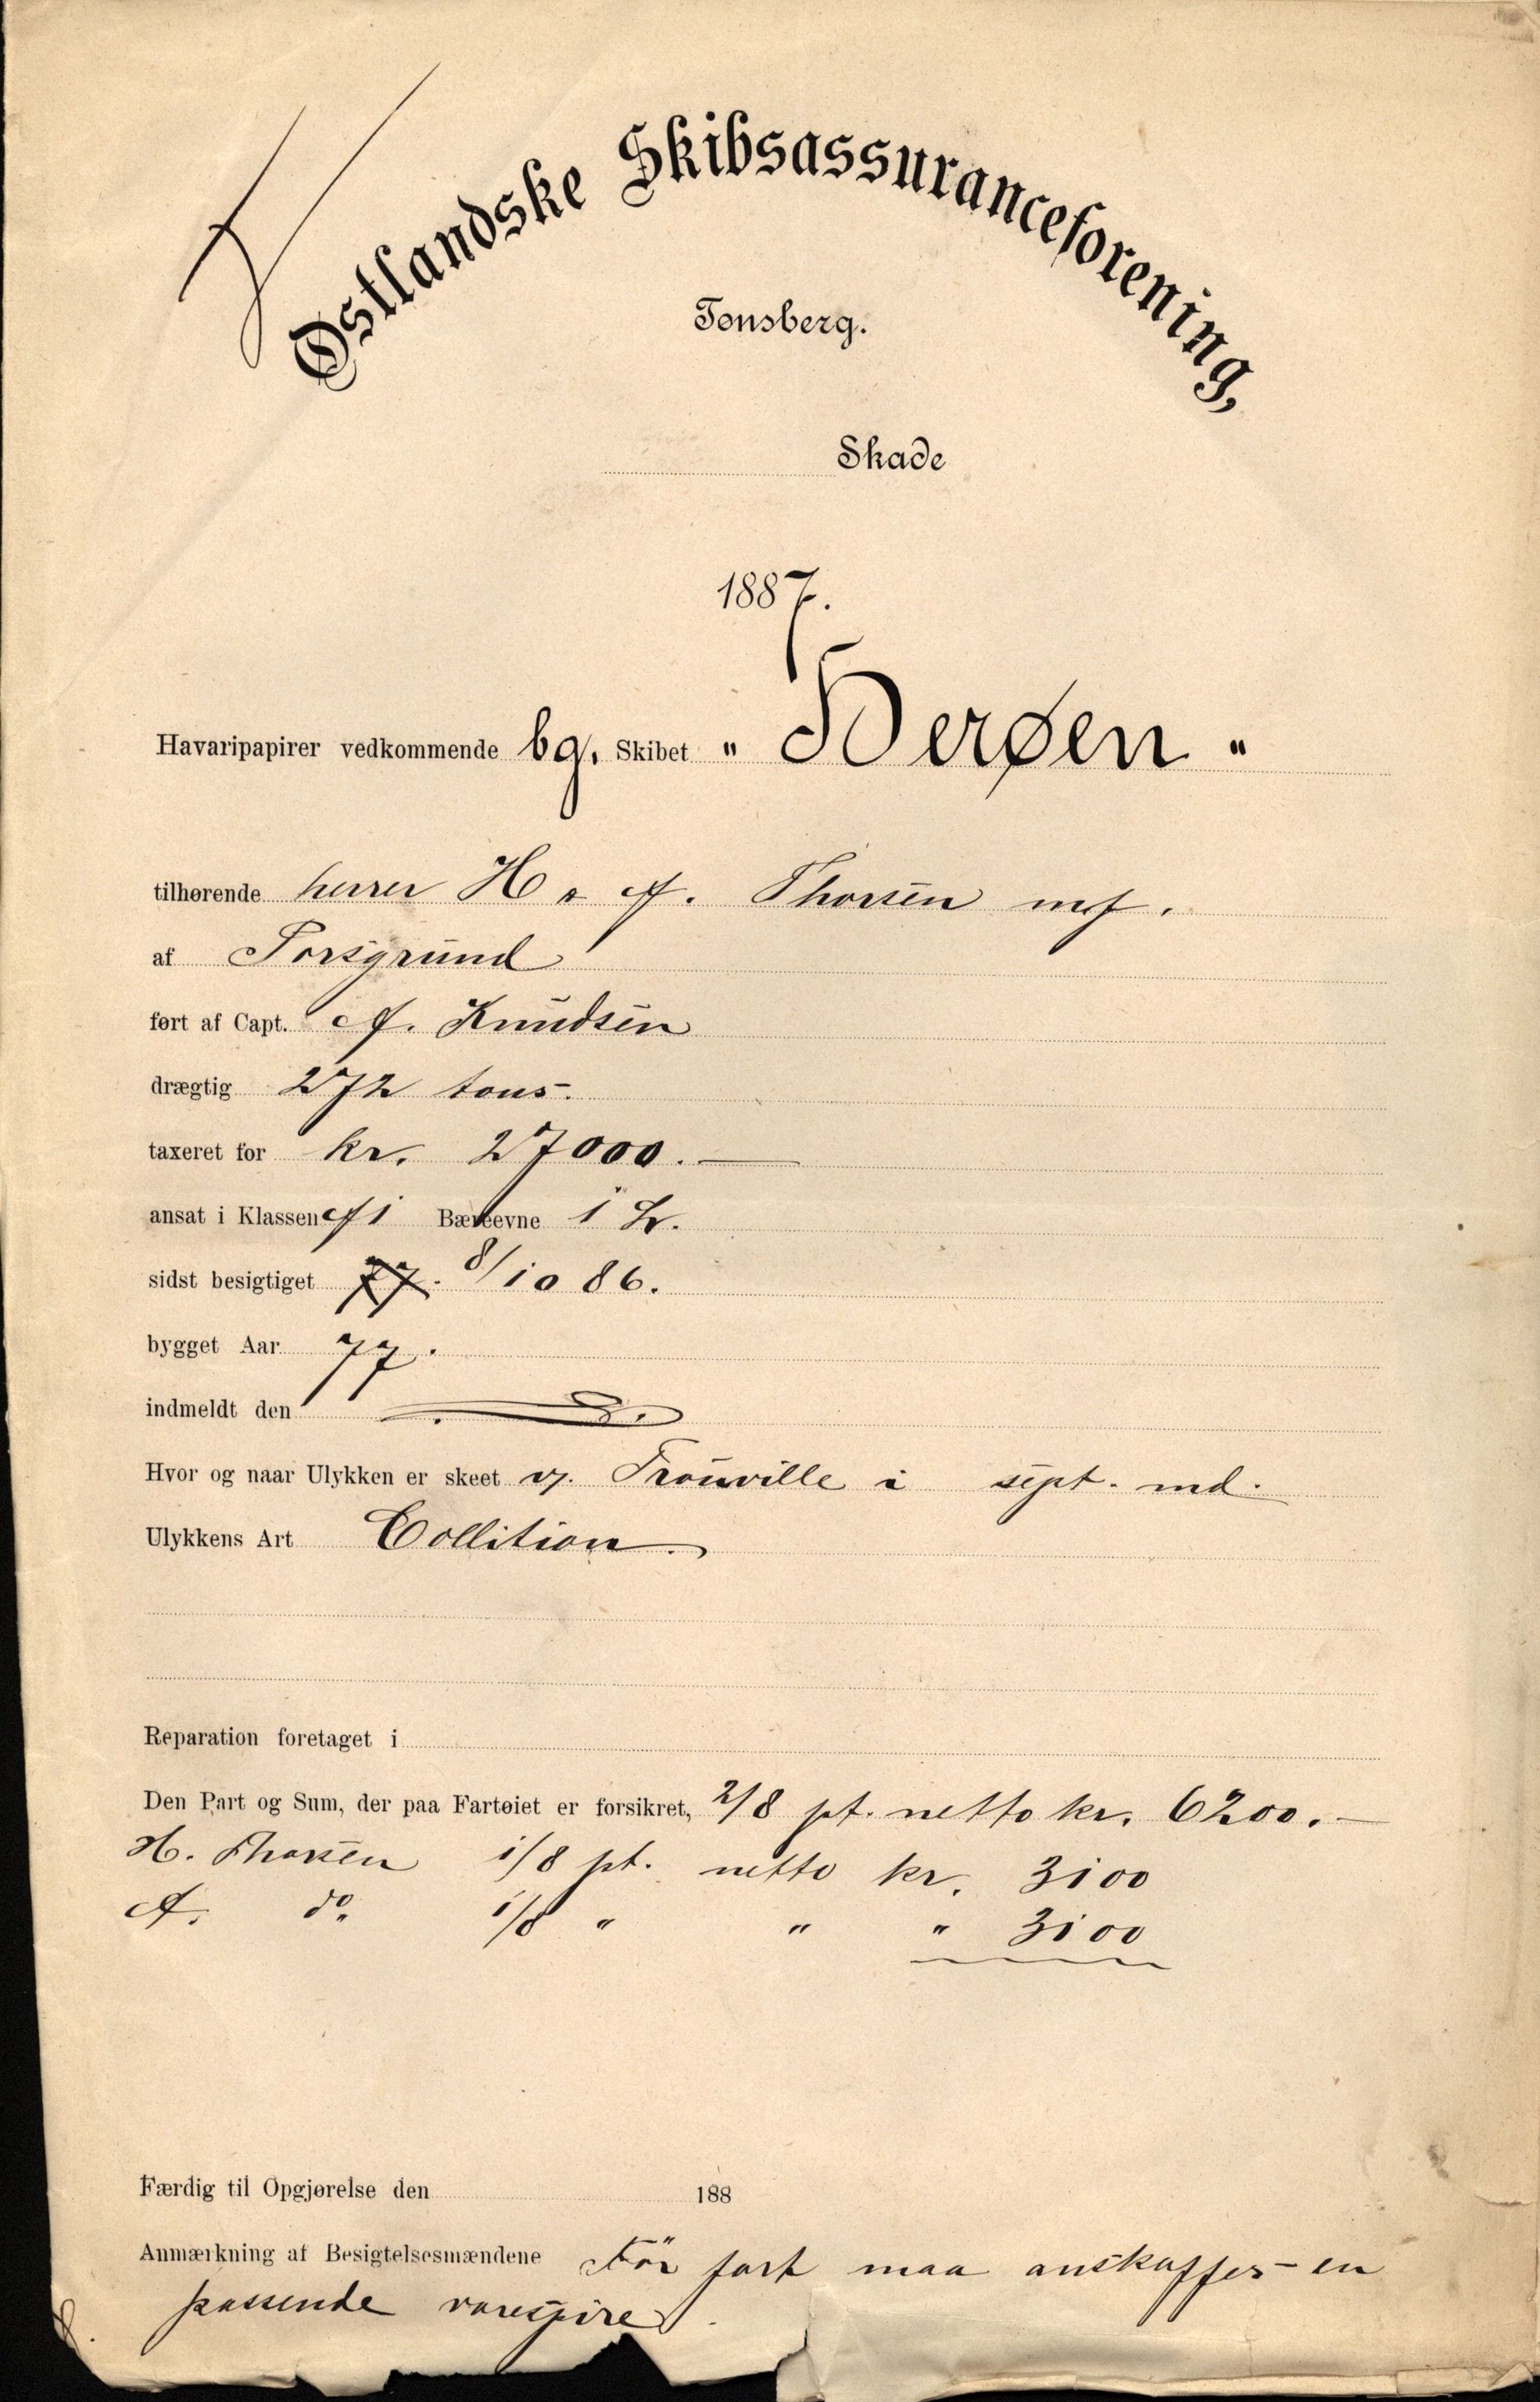 Østlandske Skibsassuranceforening,
Tønsberg.
Skade
1887.
Havaripapirer vedkommende bg. Skibet " Herøen "
tilhørende herrer H & A. Thorsen mf.
af Porsgrund
ført af Capt. A. Knudsen
drægtig 272 tons.
taxeret for kr. 27000.—
ansat i Klassen A1 Bæreevne 1 Kr.
sidst besigtiget 77. 8/10 86.
bygget Aar 77.
indmeldt den
Hvor og naar Ulykken er skeet v. Trouville i sept. md.
Ulykkens Art Collition.
Reparation foretaget i
Den Part og Sum, der paa Fartøiet er forsikret, 2/8 pt. netto kr. 6200.—
H. Thorsen 1/8 pt. netto kr. 3100
A. do. 1/8 " " " 3100
Færdig til Opgjørelse den 188
Anmærkning af Besigtelsesmændene Før fart maa anskaffes en
passende varespire.